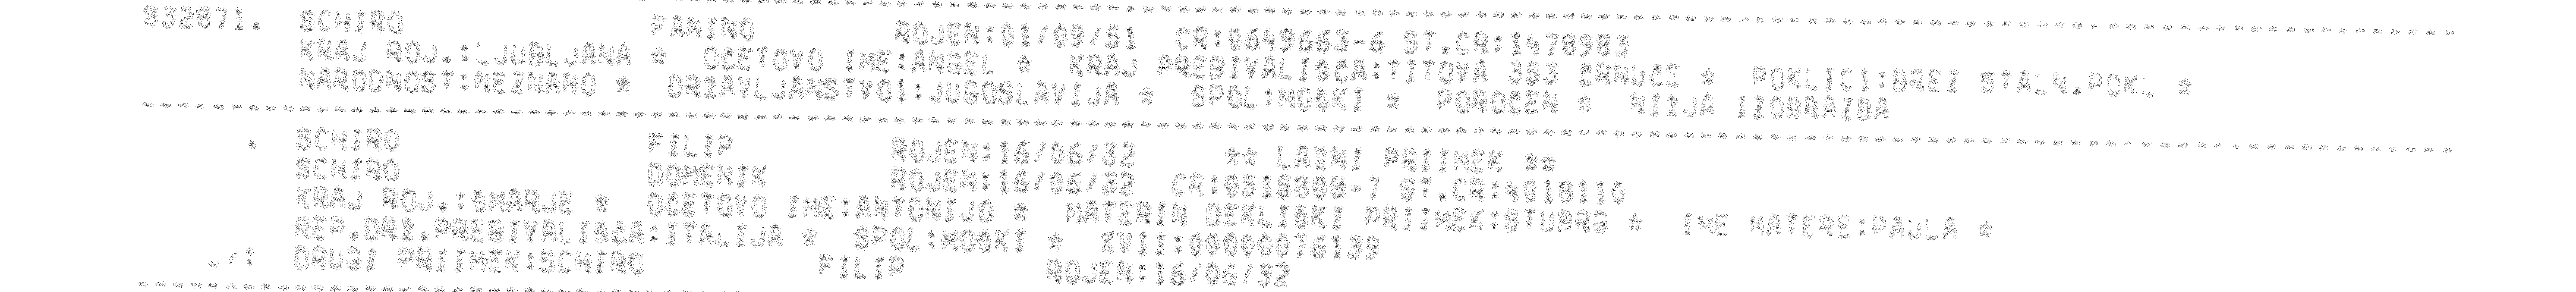 932871. SCHIRO PANINO ROJEN:01/09/51 CR:0649663-6 ST.CR:1478983
KRAJ ROJ.:LJUBLJANA * OCETOVO IME:ANGEL * KRAJ PREBIVALISCA:TITOVA 353 CRNUCE * POKLICI:BREZ STALN.POKL *
NARODNOST:NEZNANO * DRZAVLJANSTVO1:JUGOSLAVIJA * SPOL:MOSKI * POROCEN * NIZJA IZOBRAZBA
* SCHIRO FILIP ROJEN:16/06/32 ** LAZNI PRIIMEK **
SCHIRO DOMENIK ROJEN:16/06/32 ST.CR:4010110
KRAJ ROJ.:SMARJE * OCETOVO IME:ANTONIJO * MATERIN DEKLISKI PRIIMEK: * IME MATERE:PAULA *
REP.DRZ.PREBIVALISCA:ITALIJA * SPOL:MOSKI * XVII:00000076139
DRUGI PRIIMEK:SCHIRO FILIP ROJEN:16/06/32